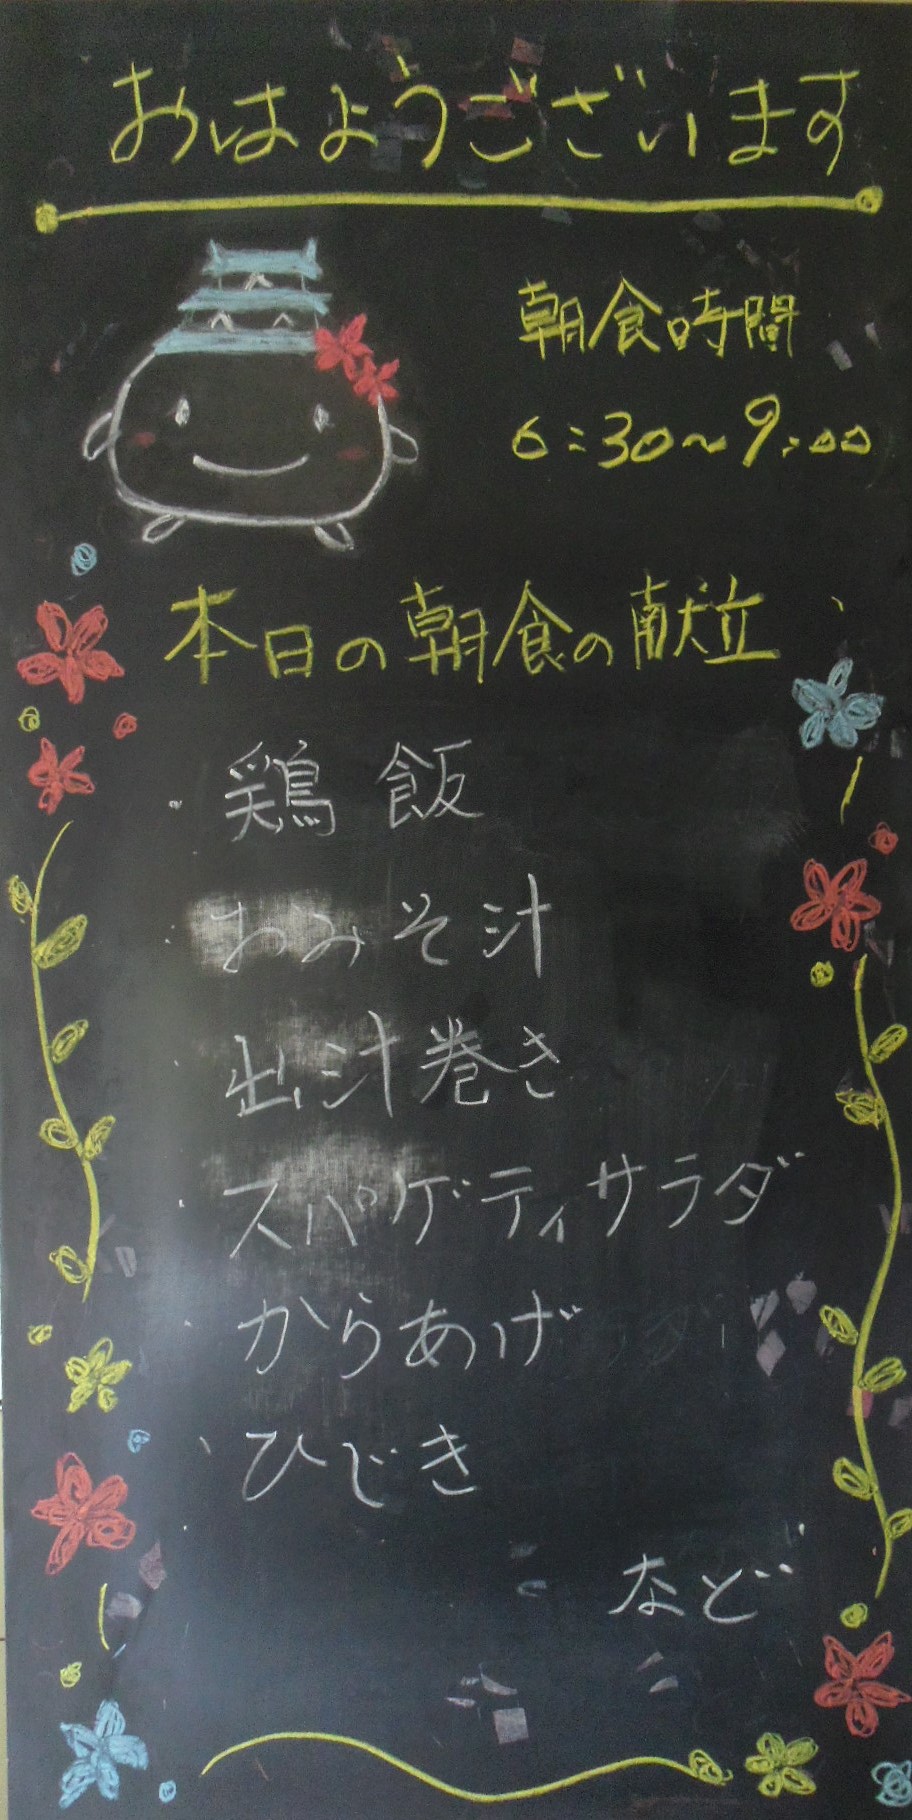 おはようございます
朝食時間
6:30～9:00
本日の朝食の献立
・鶏飯
・おみそ汁
・出汁巻き
・スパゲティサラダ
・からあげ
・ひじき
など